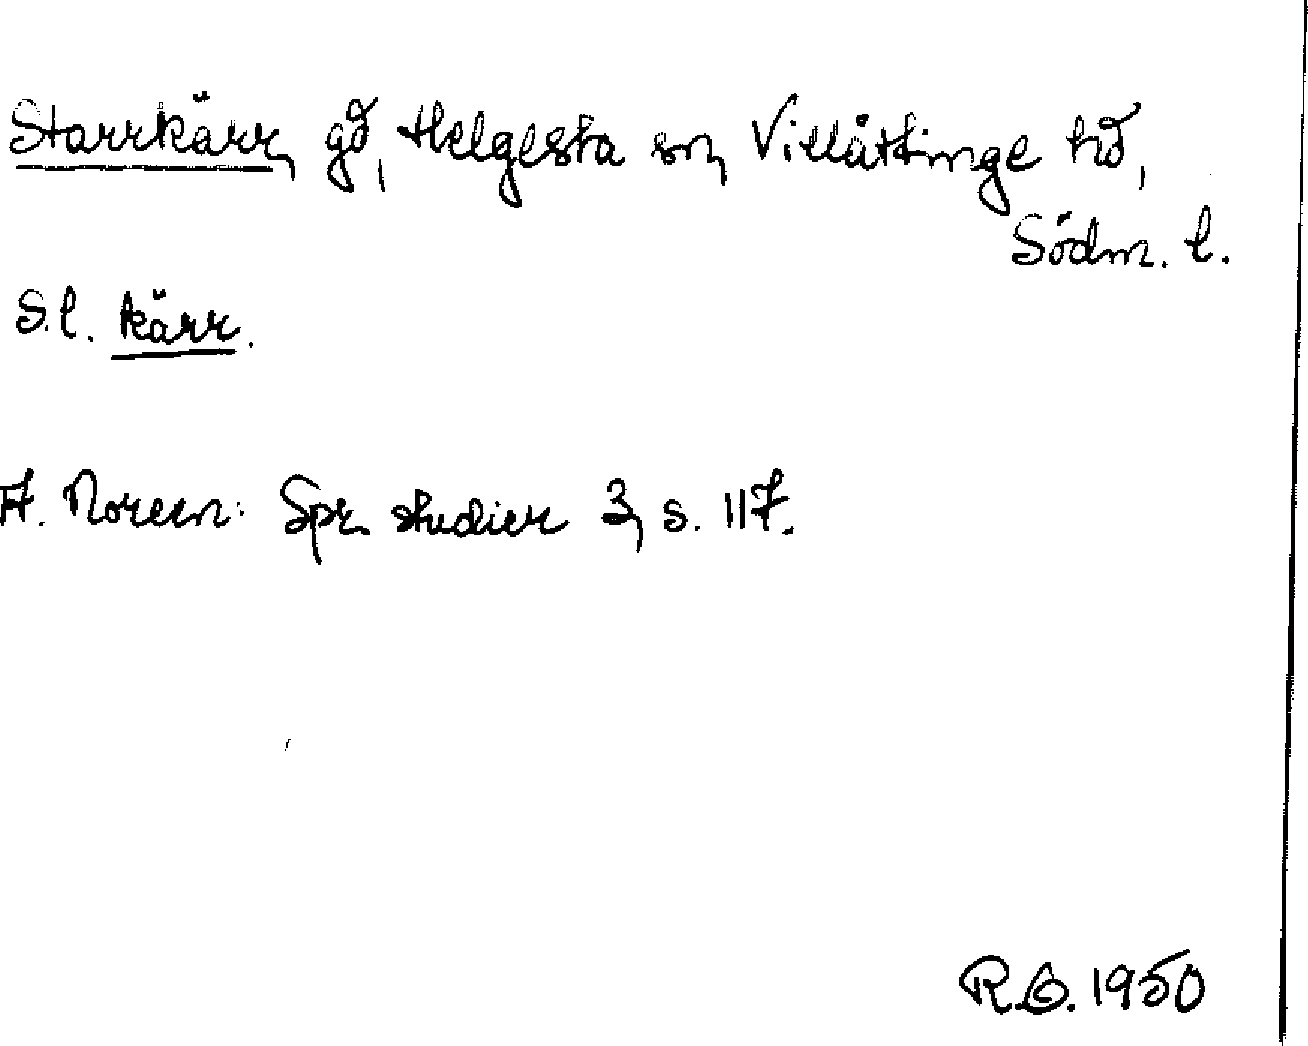 Starrkärr, gd, Helgesta sn, Villåttinge hd,
Södm. l.
S.l. kärr.
A. Noreen: Spr. studier 3, s. 117.
R.G. 1950